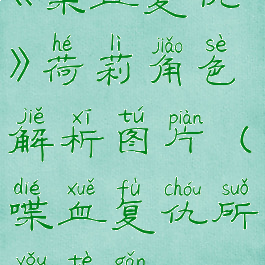 《喋血复仇
hé lì jiǎo sè
》荷莉角色
jiě xī tú piàn
解析图片（
dié xuě fù chóu suǒ
喋血复仇所
yǒu tè gǎn